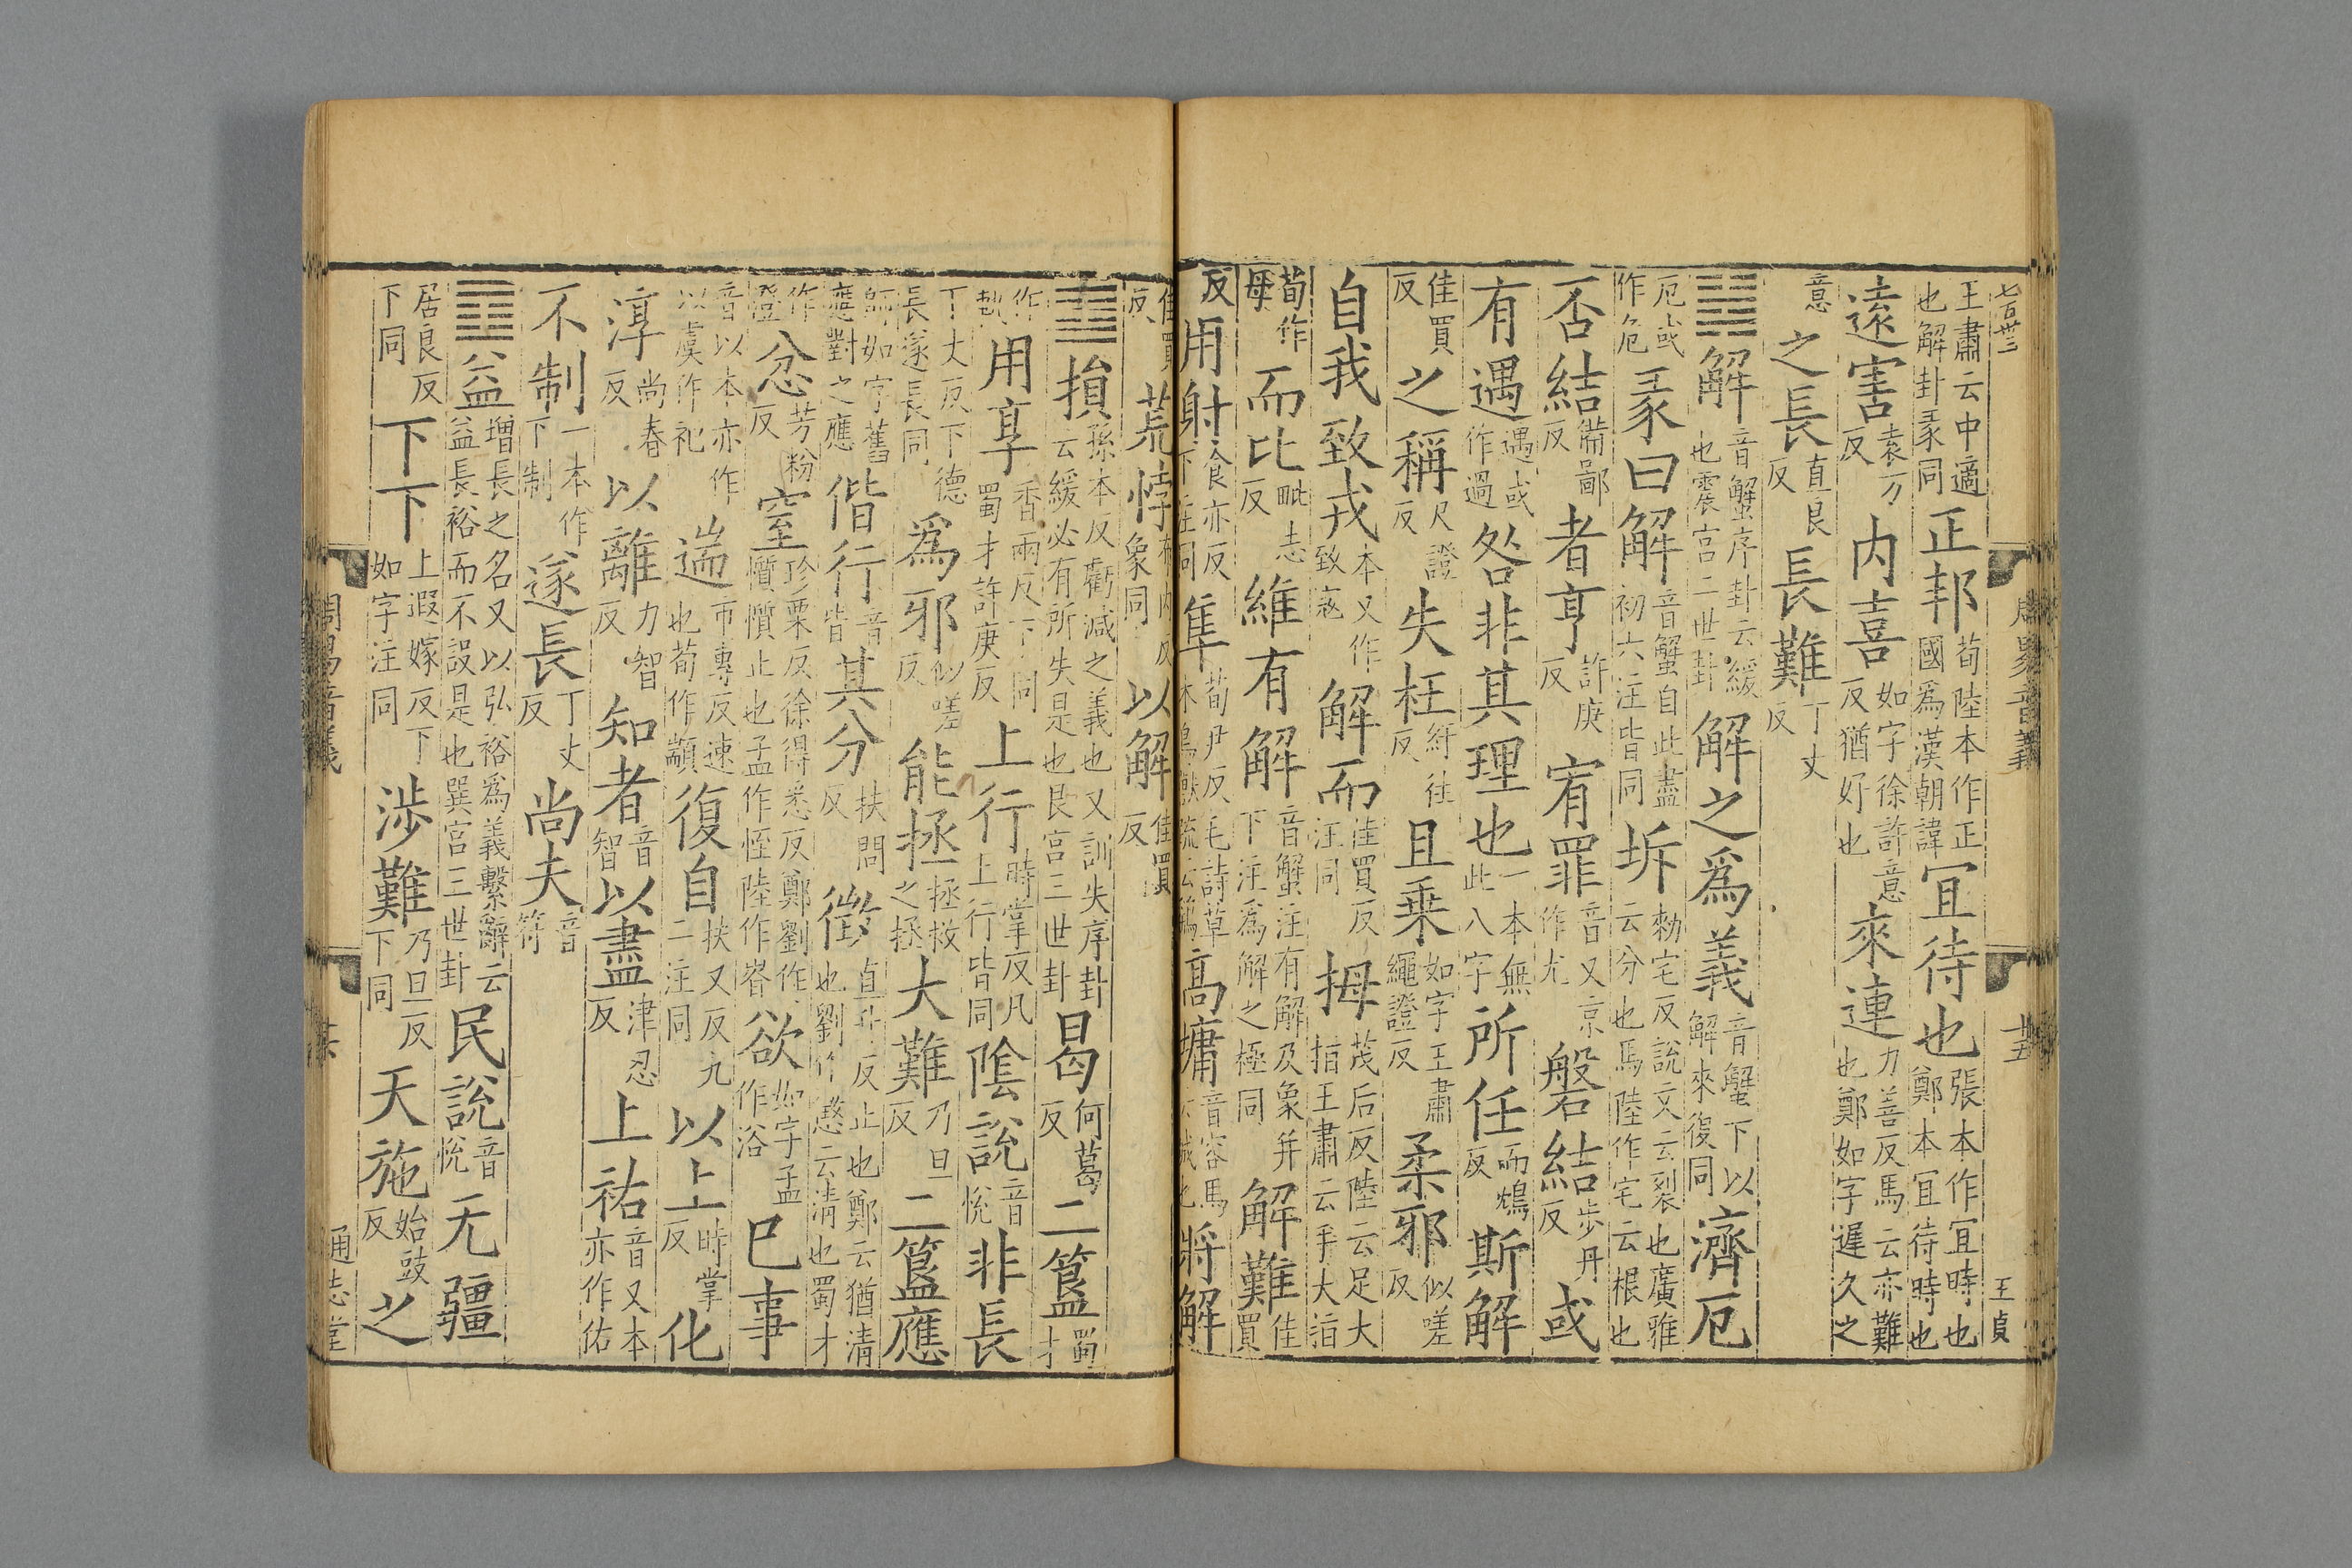 七百卌三
周易音義
廿五
王貞
王肅云中適也解卦彖同正邦荀陸本作正國爲漢朝諱宜待也張本作宜時也鄭本宜待時也
遠害袁万反内喜如字徐許意反猶好也來連力善反馬云亦難也鄭如字遲久之
意之長直良反長難丁丈反
䷧解音蟹序卦云緩也震宮二世卦解之爲義音蟹下以解來復同濟厄
厄或作危彖曰解音蟹自此盡初六注皆同坼勑宅反說文云裂也廣雅云分也馬陸作宅云根也
否結備鄙反者亨許庚反宥罪音又京作尤磐結步丹反或
有遇遇或作過咎非其理也一本無此八字所任而鴆反斯解
佳買反之稱尺證反失枉紆往反且乘如字王肅繩證反柔邪似嗟反
自我致戎本又作致寇解而佳買反注同拇茂后反陸云足大指王肅云手大指
荀作母而比毗志反維有解音蟹注有解及象并下注爲解之極同解難佳買
反用射食亦反下注同隼荀尹反毛詩草木鳥獸疏云鷂高墉音容馬云城也將解
佳買反荒悖布内反象同以解佳買反
䷨損孫本反虧減之義也又訓失序卦云緩必有所失是也艮宮三世卦曷何葛反二簋蜀才
作軌用享香兩反下同蜀才許庚反上行時掌反凡上行皆同陰說音悅非長
丁丈反下德長遂長同爲邪似嗟反能拯拯救之拯大難乃旦反二簋應
師如字舊應對之應偕行音皆其分扶問反徵直升反止也鄭云猶清也劉作懲云清也蜀才
作澄忿芳粉反窒珍栗反徐得悉反鄭劉作懫懫止也孟作恎陸作㟓欲如字孟作浴巳事
音以本亦作以虞作祀遄市專反速也荀作顓復自扶又反九二注同以上時掌反化
淳尚春反以離力智反知者音智以盡津忍反上祐音又本亦作佑
不制一本作下制遂長丁丈反尚夫音符
䷩益增長之名又以弘裕爲義繫辭云益長裕而不設是也巽宮三世卦民說音悅无疆
居良反下同下下上遐嫁反下如字注同涉難乃旦反下同天施始豉反之
周易音義
通志堂